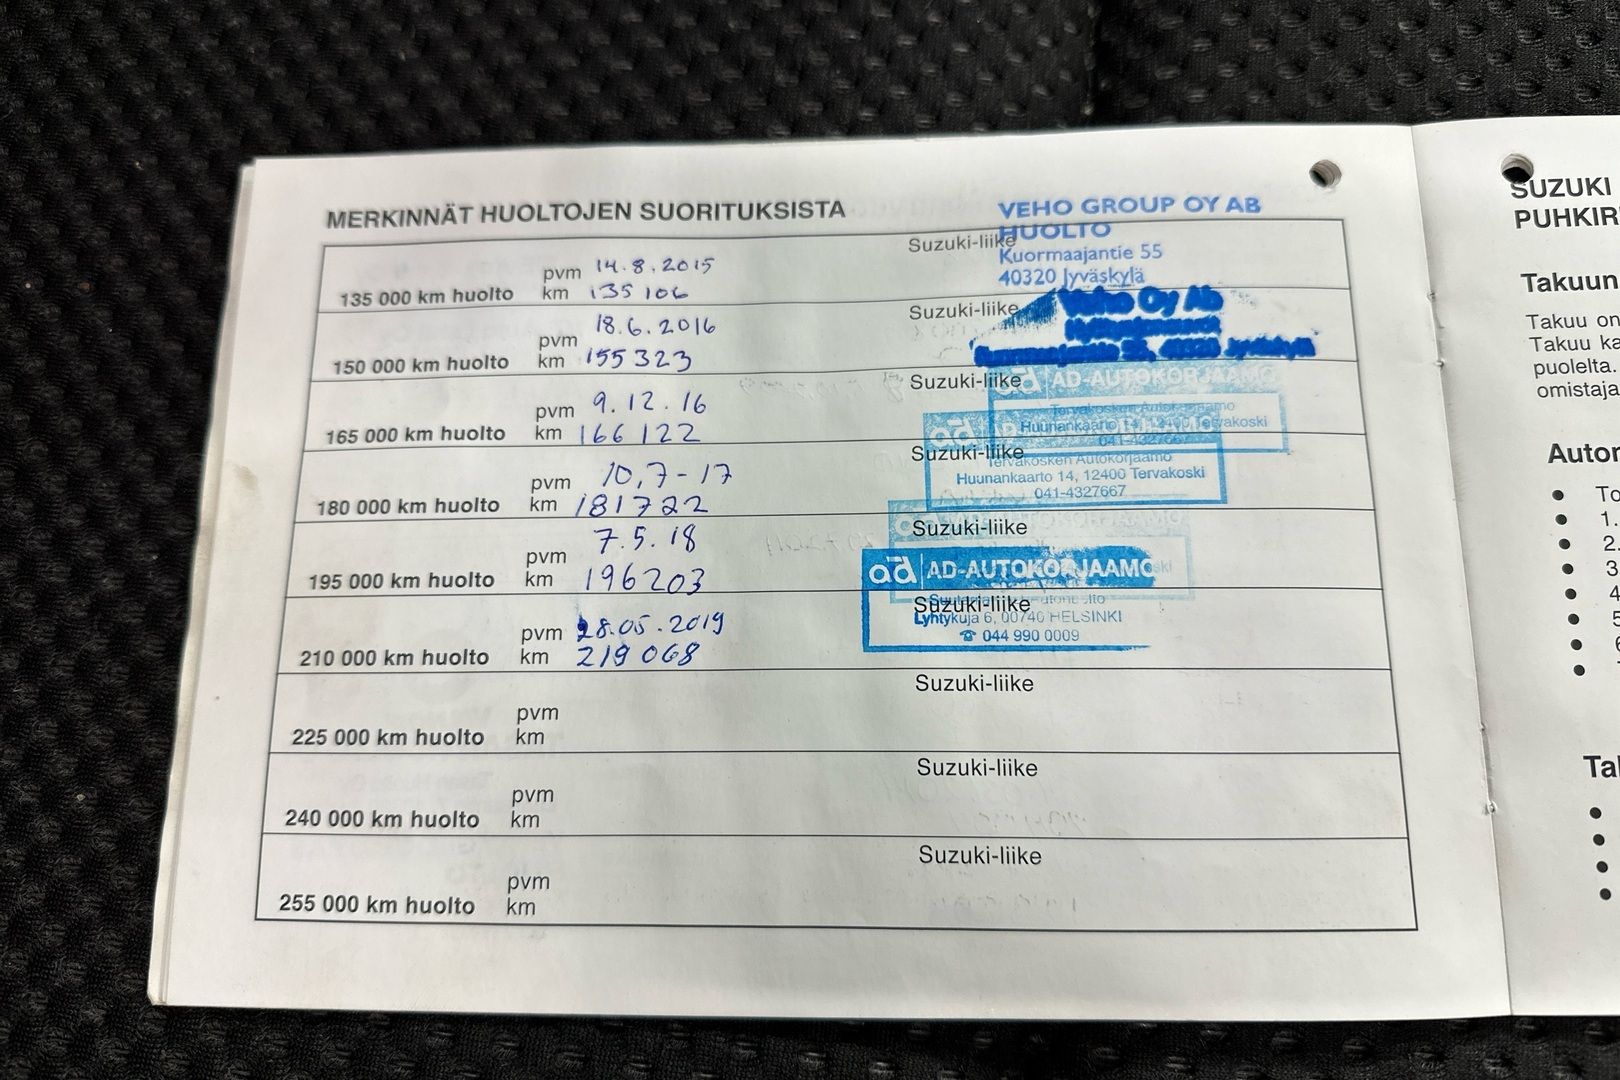 MERKINNÄT HUOLTOJEN SUORITUKSISTA
VEHO GROUP OY AB
HUOLTO
Kuormaajantie 55
40320 Jyväskylä
Suzuki-liike
135 000 km huolto
pvm 14.8.2015
km 135 106
Suzuki-liike
Veho Oy Ab
150 000 km huolto
pvm 18.6.2016
km 155323
Suzuki-liike
ad AD-AUTOKORJAAMO
Tervakosken Autokorjaamo
Huunankaarto 14, 12400 Tervakoski
041-4327667
165 000 km huolto
pvm 9.12.16
km 166 122
Suzuki-liike
ad
Tervakosken Autokorjaamo
Huunankaarto 14, 12400 Tervakoski
041-4327667
180 000 km huolto
pvm 10,7-17
km 181722
Suzuki-liike
195 000 km huolto
pvm 7.5.18
km 196203
ad AD-AUTOKORJAAMO
Suzuki-liike
Lyhtykuja 6, 00740 HELSINKI
☎ 044 990 0009
210 000 km huolto
pvm 28.05.2019
km 219 068
Suzuki-liike
225 000 km huolto
pvm
km
Suzuki-liike
240 000 km huolto
pvm
km
Suzuki-liike
255 000 km huolto
pvm
km
SUZUKI
Takuun
Takuu on
Takuu ka
puolelta.
omistaja
Autor
To
1.
2.
3
4
5
6